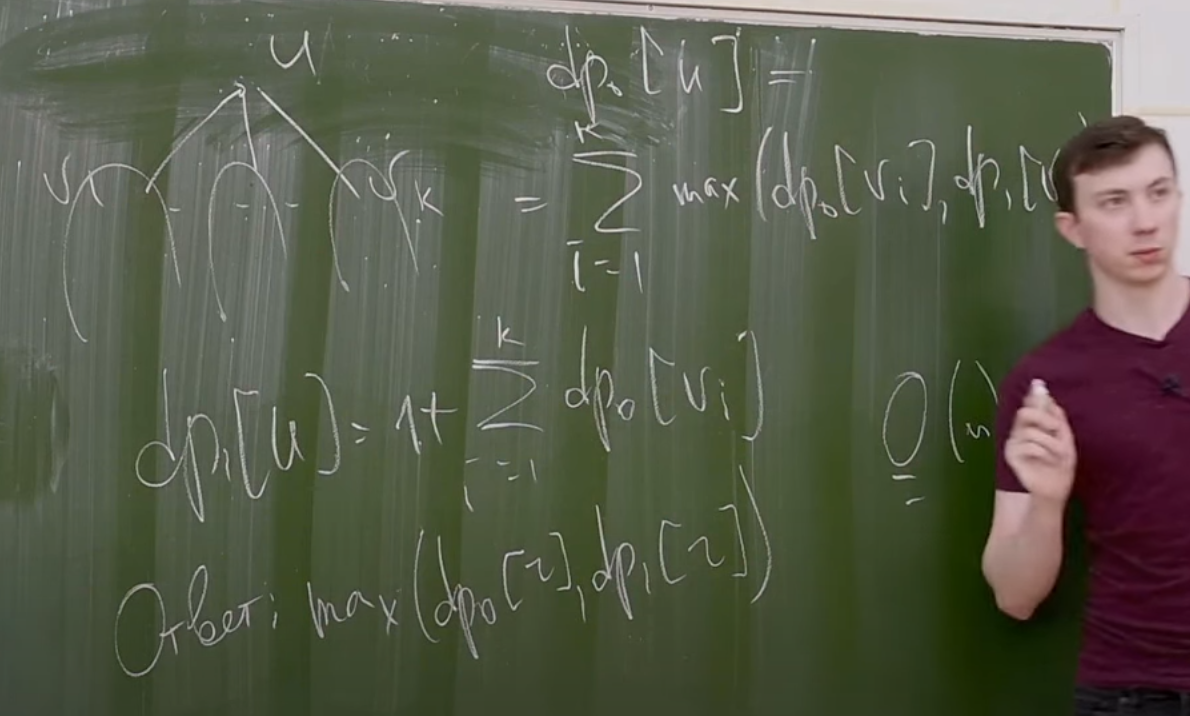 u
dp₀[u] =
v₁ - - - vₖ
= ∑ᵢ₌₁ᵏ max(dp₀[vᵢ], dp₁[v
dp₁[u] = 1 + ∑ᵢ₌₁ᵏ dp₀[vᵢ]
O(n)
Ответ: max(dp₀[r], dp₁[r])